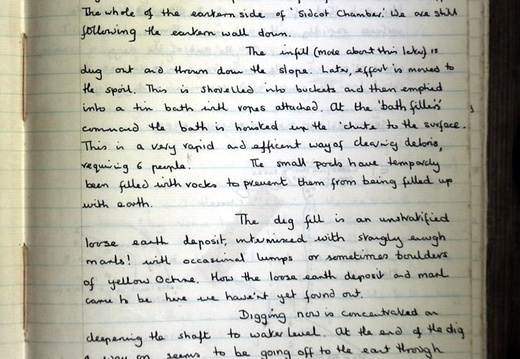 The whole of the eastern side of 'Sidcot Chamber'. We are still
following the eastern wall down.
The infill (more about this later) is
dug out and thrown down the slope. Later, effort is moved to
the spoil. This is shovelled into buckets and then emptied
into a tin bath with ropes attached. At the 'bath fillers'
command the bath is hoisked up the 'chute' to the surface.
This is a very rapid and efficent way of clearing debris,
requiring 6 people. The small pools have temporarly
been filled with rocks to prevent them from being filled up
with earth.
The dig fill is an unstratified
loose earth deposit, intermixed with strangly enough
marls! with occasional lumps or sometimes boulders
of yellow Ochre. How the loose earth deposit and marl
came to be here we have'nt yet found out.
Digging now is concentrated on
deepening the shaft to water level. At the end of the dig
a way on seems to be going off to the east through